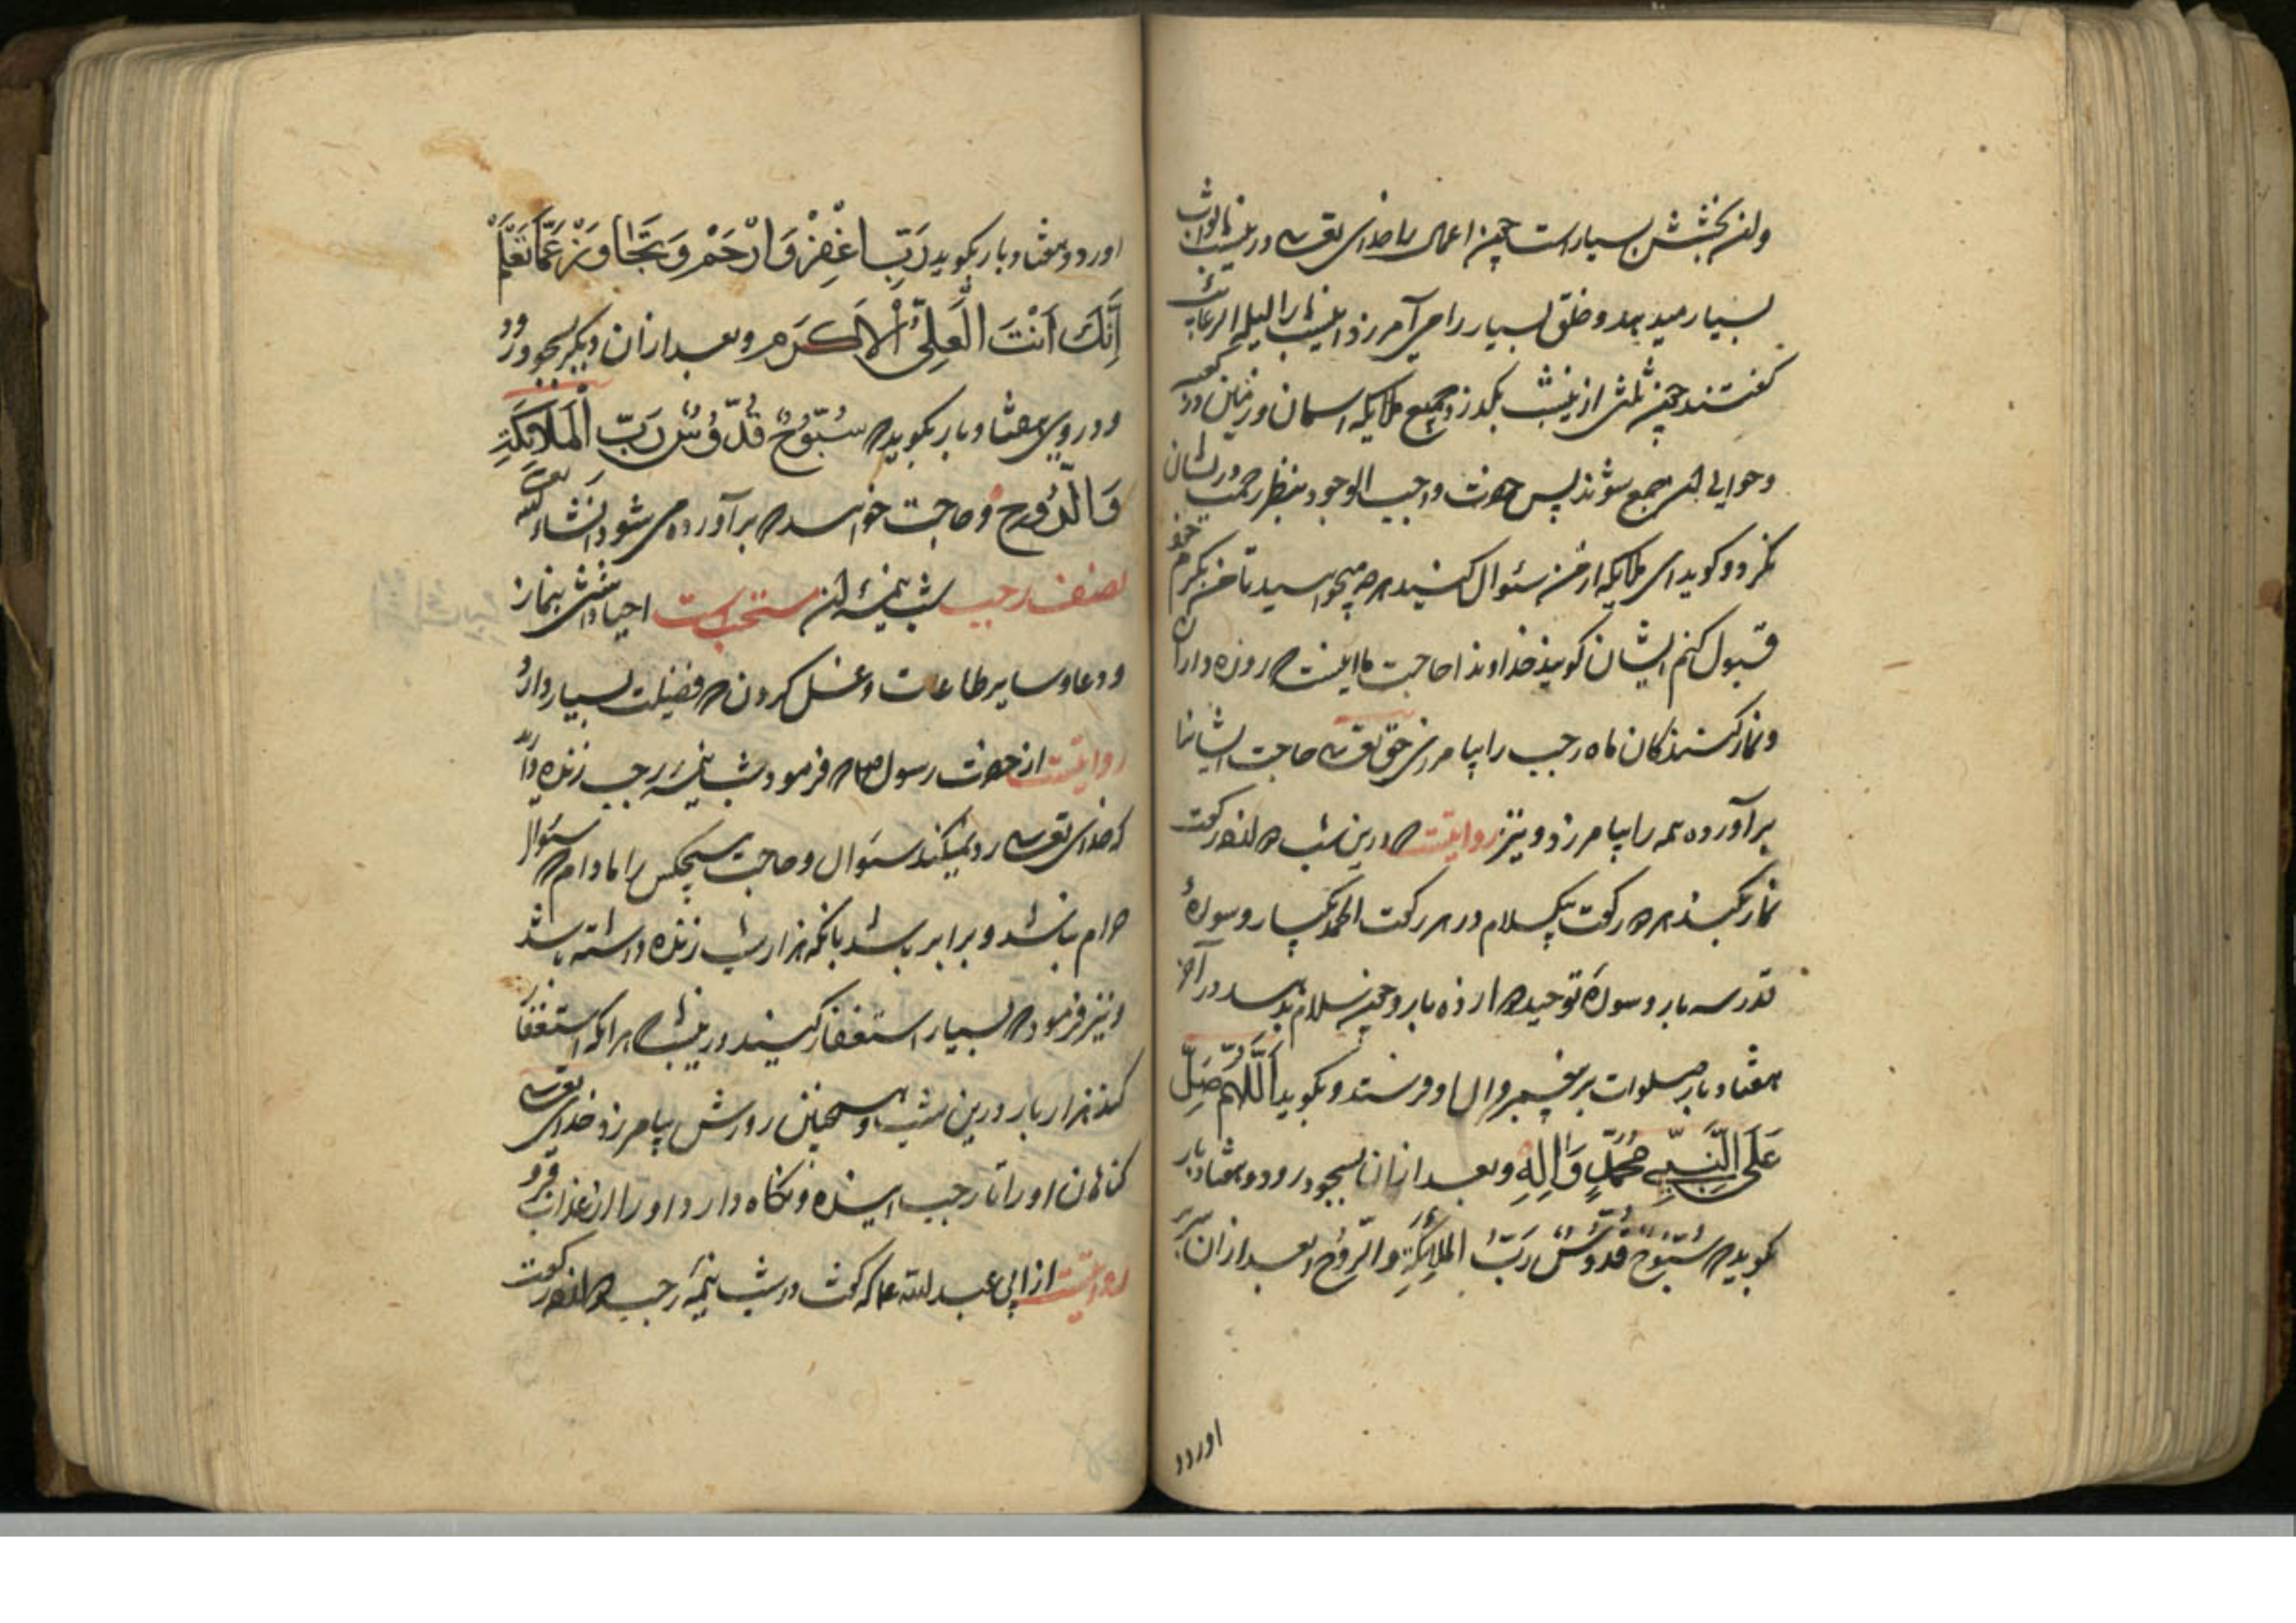 بخشش بسیار است چون اعمال را خدای تعالی در
بسیار میدهد و خلق بسیار را می آمرزد لیلة الرغائب
گفتند چون ثلثی ازینشب بگذرد جمیع ملایکه اسمان و زمین در کعبه
و حوالی جمع شوند پس حضرت واجب الوجود بنظر رحمت دریشان
نگرد و گوید ای ملایکه از من سئوال کنید هرچه میخواهید تا من بکرم خود
قبول کنم ایشان گویند خداوندا حاجت ما اینست که روزه داران
و نماز کنندگان ماه رجب را بیامرزی حق تعالی حاجت ایشانرا
برآورده همه را بیامرزد و نیز روایتست که درین شب رکعت
نماز بکنند هر دو رکعت بیکسلام در هر رکعت الحمد یکبار و سورهٔ
قدر سه بار و سورهٔ توحید دوازده بار و چون سلام بدهد در آخر
هفتاد بار صلوات بر پیغمبر و ال او فرستد و بگوید اَللّٰهُمَّ صَلِّ
عَلَى النَّبِيِّ مُحَمَّدٍ وَاٰلِهِ و بعد ازان بسجود رود و هفتاد بار
بگوید که سُبُّوحٌ قُدُّوسٌ رَبُّ الملائِكَةِ والرُّوح و بعد ازان سر بر
اورد و
اورد و هفتاد بار بگوید رَبِّ اغْفِرْ وَارْحَمْ وَتَجَاوَزْ عَمَّا تَعْلَمْ
اِنَّكَ اَنْتَ الْعَلِيُّ الْاَكْرَم و بعد ازان دیگر بسجود رود
و در وی هفتاد بار بگوید که سُبُّوحٌ قُدُّوسٌ رَبُّ الْمَلَائِكَةِ
وَالرُّوح و حاجت خواهد که برآورده می شود انشاء الله تعالی
نصف رجب شب نیمهٔ ان مستحب است احیا داشتن بنماز
و دعا و سایر طاعات و غسل کردن که فضیلت بسیار دارد
روایتست از حضرت رسول که فرمود شب نیمه رجب زنده دارد
که خدای تعالی رد نمیکند سئوال و حاجت هیچکس را مادام که سئوال
حرام نباشد و برابر باشد بآنکه هزار شب زنده داشته باشد
و نیز فرمود که بسیار استغفار کنید درینشب که هر آنکه استغفار
کند هزار بار درین شب و همچنین روزش بیامرزد خدای تعالی
گناهان او را تا رجب اینده و نگاه دارد او را از عذاب قبر
روایتست از ابی عبد الله ع که گفت در شب نیمهٔ رجب رکعت